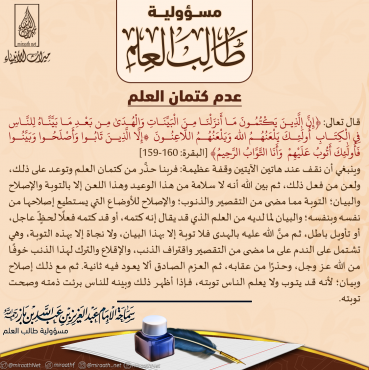 مسؤولية
طالب العلم
ميراث الأنبياء
miraath.net
عدم كتمان العلم
قال تعالى: ﴿إِنَّ الَّذِينَ يَكْتُمُونَ مَا أَنزَلْنَا مِنَ الْبَيِّنَاتِ وَالْهُدَىٰ مِن بَعْدِ مَا بَيَّنَّاهُ لِلنَّاسِ
فِي الْكِتَابِ أُولَٰئِكَ يَلْعَنُهُمُ اللَّهُ وَيَلْعَنُهُمُ اللَّاعِنُونَ * إِلَّا الَّذِينَ تَابُوا وَأَصْلَحُوا وَبَيَّنُوا
فَأُولَٰئِكَ أَتُوبُ عَلَيْهِمْ وَأَنَا التَّوَّابُ الرَّحِيمُ﴾ [البقرة: 160-159]
وينبغي أن نقف عند هاتين الآيتين وقفة عظيمة: فربنا حذّر من كتمان العلم وتوعد على ذلك،
ولعن من فعل ذلك، ثم بين الله أنه لا سلامة من هذا الوعيد وهذا اللعن إلا بالتوبة والإصلاح
والبيان؛ التوبة مما مضى من التقصير والذنوب؛ والإصلاح للأوضاع التي يستطيع إصلاحها من
نفسه وبنفسه؛ والبيان لما لديه من العلم الذي قد يقال إنه كتمه، أو قد كتمه فعلًا لحظّ عاجل،
أو تأويل باطل، ثم منّ الله عليه بالهدى فلا توبة إلا بهذا البيان، ولا نجاة إلا بهذه التوبة، وهي
تشتمل على الندم على ما مضى من التقصير واقتراف الذنب، والإقلاع والترك لهذا الذنب خوفًا
من الله عز وجل، وحذرًا من عقابه، ثم العزم الصادق ألا يعود فيه ثانية. ثم مع ذلك إصلاح
وبيان؛ لأنه قد يتوب ولا يعلم الناس توبته، فإذا أظهر ذلك وبينه للناس برئت ذمته وصحت
توبته.
سماحة الإمام عبد العزيز بن عبد الله بن باز رحمه الله
مسؤولية طالب العلم
@miraathNet
@miraathf